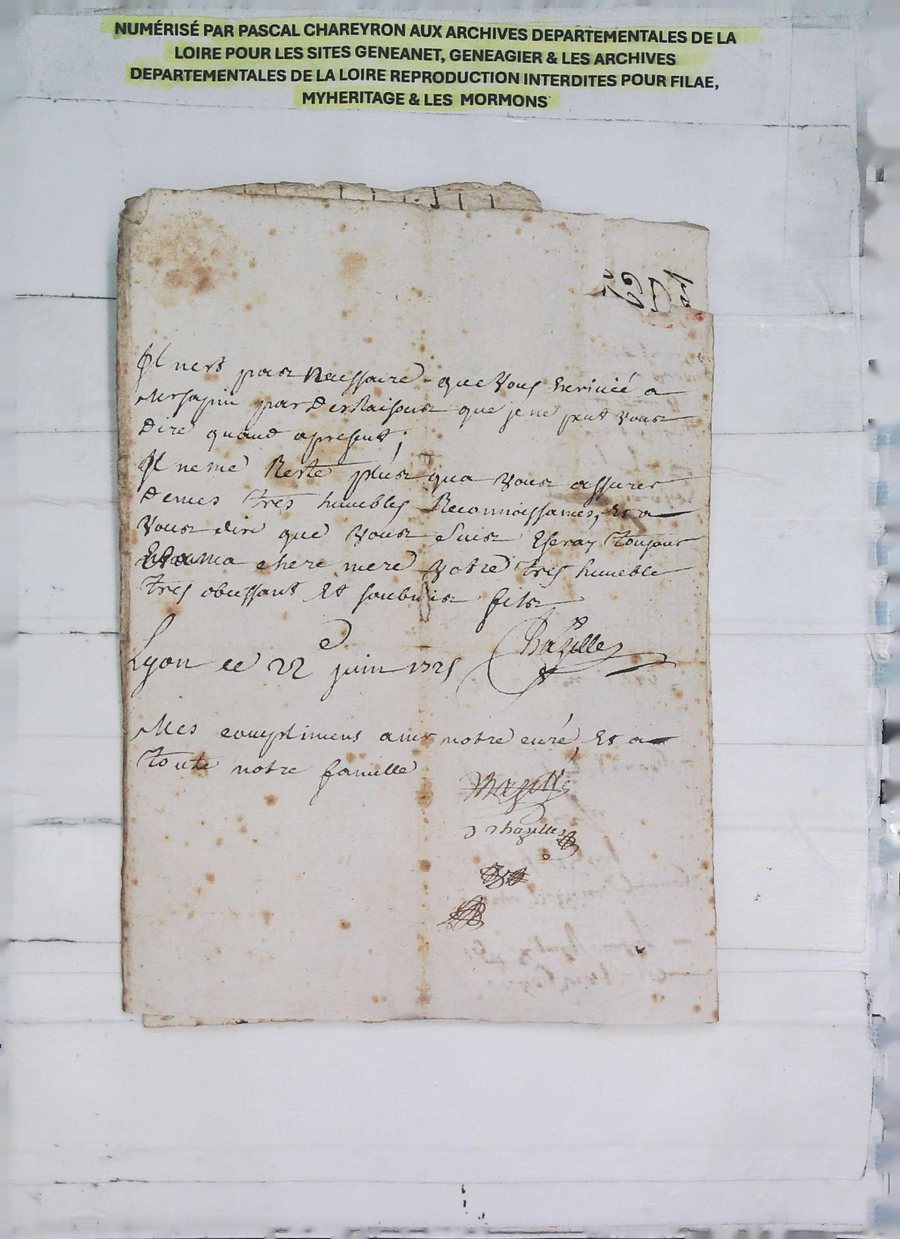 NUMÉRISÉ PAR PASCAL CHAREYRON AUX ARCHIVES DEPARTEMENTALES DE LA
LOIRE POUR LES SITES GENEANET, GENEAGIER & LES ARCHIVES
DEPARTEMENTALES DE LA LOIRE REPRODUCTION INTERDITES POUR FILAE,
MYHERITAGE & LES MORMONS
Il nest pas Naessaire que Vous Ecriviéé a
par des Raisons que je ne peut vous
Dire quand apresent,
Il ne me Reste plus qua vous assurer
Demes tres humbles Reconnoissances, Et a
Vous dire que vous suis Eseray toujour
ma chere mere Votre tres humble
tres obeissant Et soubmis fils
Lyon ce 22 juin 1725
Chazelles
Mes complimens a mr notre curé, Et a
toute notre famille
Chazelles